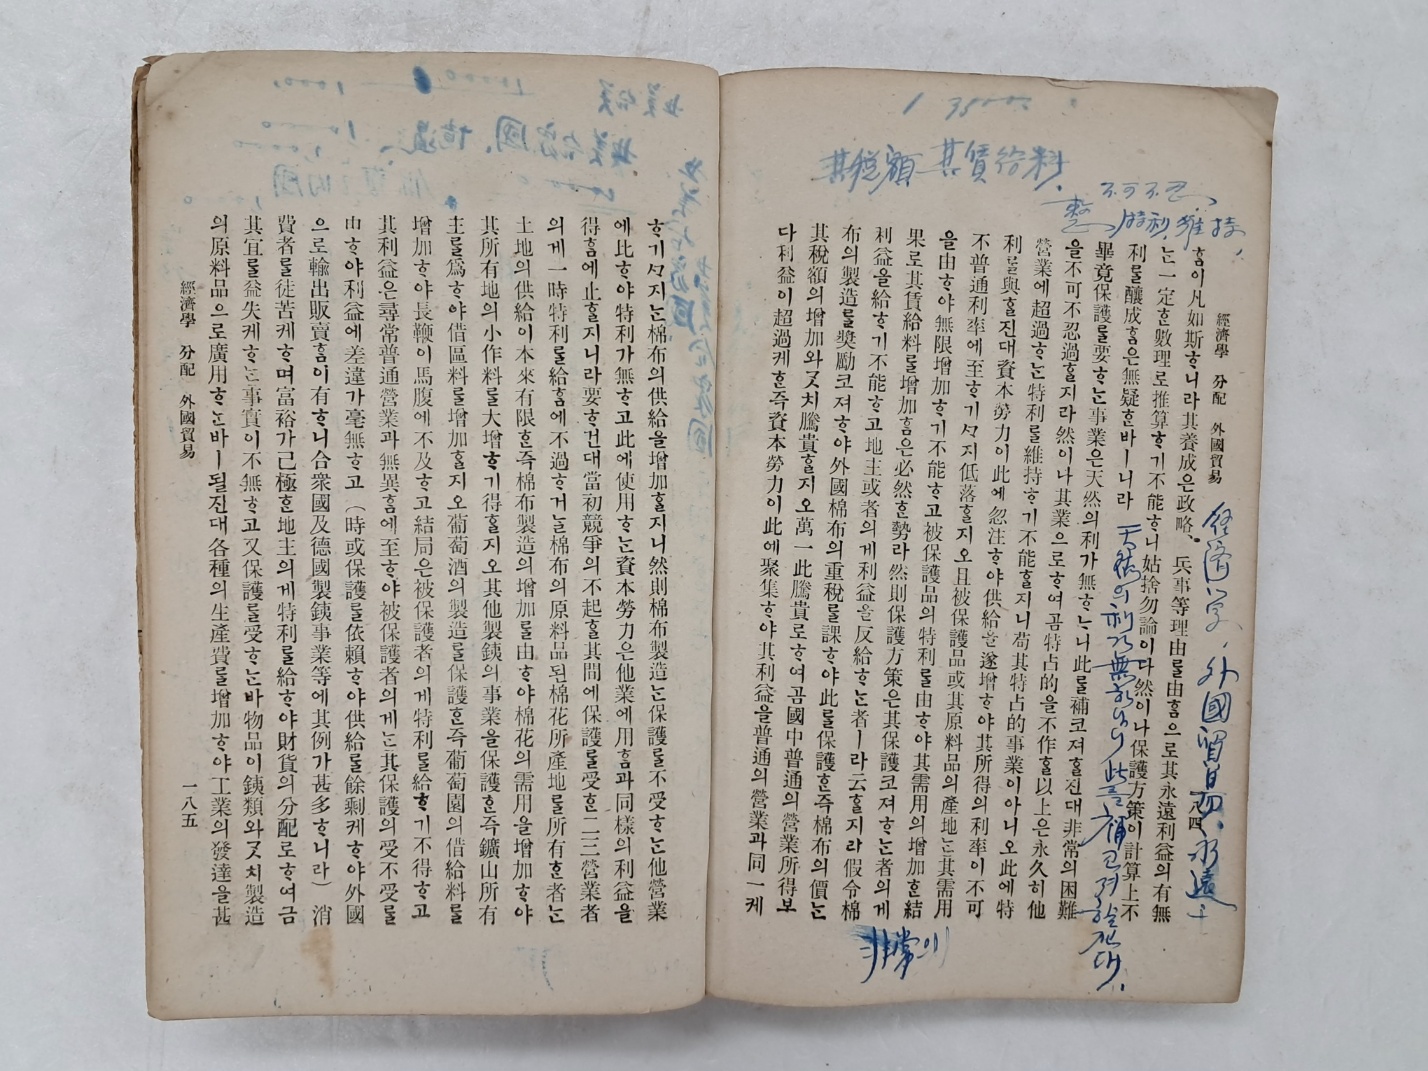 經濟學 分配 外國貿易 一八四
ᄒᆞᆷ이凡如斯ᄒᆞ니라其養成은政略、兵事等理由ᄅᆞᆯ由ᄒᆞᆷ으로其永遠利益의有無
ᄂᆞᆫ一定ᄒᆞᆫ數理로推算ᄒᆞ기不能ᄒᆞ니姑捨勿論이다然이나保護方策이計算上不
利ᄅᆞᆯ釀成ᄒᆞᆷ은無疑ᄒᆞᆫ바ㅣ니라
畢竟保護ᄅᆞᆯ要ᄒᆞᄂᆞᆫ事業은天然의利가無ᄒᆞᄂᆞ니此ᄅᆞᆯ補코져ᄒᆞᆯ진대非常의困難
을不可不忍過ᄒᆞᆯ지라然이나其業으로ᄒᆞ여곰特占的을不作ᄒᆞᆯ以上은永久히他
營業에超過ᄒᆞᄂᆞᆫ特利ᄅᆞᆯ維持ᄒᆞ기不能ᄒᆞᆯ지니苟其特占的事業이아니오此에特
利ᄅᆞᆯ與ᄒᆞᆯ진대資本勞力이此에忽注ᄒᆞ야供給을遂增ᄒᆞ야其所得의利率이不可
不普通利率에至ᄒᆞ기ᄭᆞ지低落ᄒᆞᆯ지오且被保護品或其原料品의產地ᄂᆞᆫ其需用
을由ᄒᆞ야無限增加ᄒᆞ기不能ᄒᆞ고被保護品의特利ᄅᆞᆯ由ᄒᆞ야其需用의增加ᄒᆞᆫ結
果로其賃給料ᄅᆞᆯ增加ᄒᆞᆷ은必然ᄒᆞᆫ勢라然則保護方策은其保護코져ᄒᆞᄂᆞᆫ者의게
利益을給ᄒᆞ기不能ᄒᆞ고地主或者의게利益을反給ᄒᆞᄂᆞᆫ者ㅣ라云ᄒᆞᆯ지라假令棉
布의製造ᄅᆞᆯ奬勵코져ᄒᆞ야外國棉布의重稅ᄅᆞᆯ課ᄒᆞ야此ᄅᆞᆯ保護ᄒᆞᆫ즉棉布의價ᄂᆞᆫ
其稅額의增加와ᄀᆞᆺ치騰貴ᄒᆞᆯ지오萬一此騰貴로ᄒᆞ여곰國中普通의營業所得보
다利益이超過케ᄒᆞᆫ즉資本勞力이此에聚集ᄒᆞ야其利益을普通의營業과同一케
其稅額 其賃給料
不可不忍
特利 維持
經濟學, 外國貿易 永遠
天然의 利가 無ᄒᆞᄂᆞ니 此를 補코져 ᄒᆞᆯ진대
非常의
ᄒᆞ기ᄭᆞ지ᄂᆞᆫ棉布의供給을增加ᄒᆞᆯ지니然則棉布製造ᄂᆞᆫ保護ᄅᆞᆯ不受ᄒᆞᄂᆞᆫ他營業
에比ᄒᆞ야特利가無ᄒᆞ고此에使用ᄒᆞᄂᆞᆫ資本勞力은他業에用ᄒᆞᆷ과同樣의利益을
得ᄒᆞᆷ에止ᄒᆞᆯ지니라要ᄒᆞ건대當初競爭의不起ᄒᆞᆯ其間에保護ᄅᆞᆯ受ᄒᆞᆫ二三營業者
의게一時特利ᄅᆞᆯ給ᄒᆞᆷ에不過ᄒᆞ거ᄂᆞᆯ棉布의原料品된棉花所產地ᄅᆞᆯ所有ᄒᆞᆫ者ᄂᆞᆫ
土地의供給이本來有限ᄒᆞᆫ즉棉布製造의增加ᄅᆞᆯ由ᄒᆞ야棉花의需用을增加ᄒᆞ야
其所有地의小作料ᄅᆞᆯ大增ᄒᆞ기得ᄒᆞᆯ지오其他製鐵의事業을保護ᄒᆞᆫ즉鑛山所有
主ᄅᆞᆯ爲ᄒᆞ야借區料ᄅᆞᆯ增加ᄒᆞᆯ지오葡萄酒의製造ᄅᆞᆯ保護ᄒᆞᆫ즉葡萄園의借給料ᄅᆞᆯ
增加ᄒᆞ야長鞭이馬腹에不及ᄒᆞ고結局은被保護者의게特利ᄅᆞᆯ給ᄒᆞ기不得ᄒᆞ고
其利益은尋常普通營業과無異ᄒᆞᆷ에至ᄒᆞ야被保護者의게ᄂᆞᆫ其保護의受不受ᄅᆞᆯ
由ᄒᆞ야利益에差違가毫無ᄒᆞ고（時或保護ᄅᆞᆯ依賴ᄒᆞ야供給ᄅᆞᆯ餘剩케ᄒᆞ야外國
으로輸出販賣ᄒᆞᆷ이有ᄒᆞ니合衆國及德國製鐵事業等에其例가甚多ᄒᆞ니라）消
費者ᄅᆞᆯ徒苦케ᄒᆞ며富裕가己極ᄒᆞᆫ地主의게特利ᄅᆞᆯ給ᄒᆞ야財貨의分配로ᄒᆞ여금
其宜ᄅᆞᆯ益失케ᄒᆞᄂᆞᆫ事實이不無ᄒᆞ고又保護ᄅᆞᆯ受ᄒᆞᄂᆞᆫ바物品이鐵類와ᄀᆞᆺ치製造
의原料品으로廣用ᄒᆞᄂᆞᆫ바ㅣ될진대各種의生產費ᄅᆞᆯ增加ᄒᆞ야工業의發達을甚
經濟學 分配 外國貿易 一八五